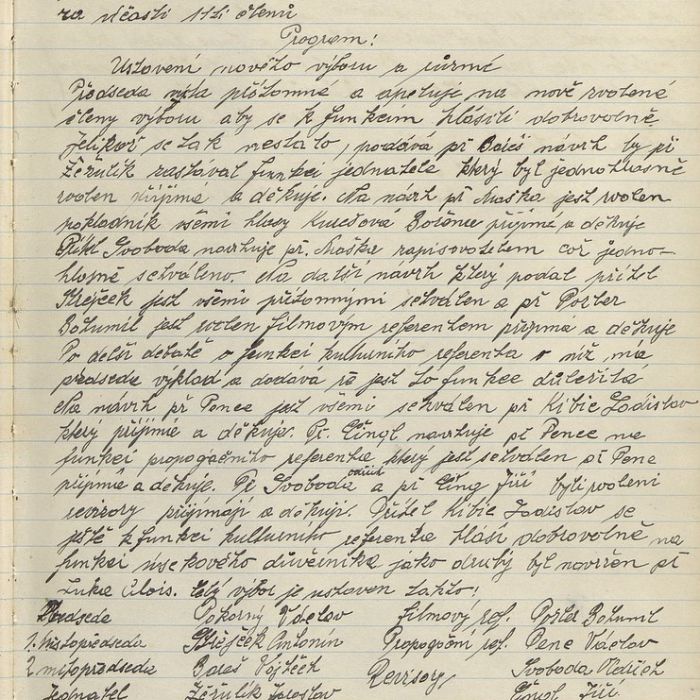 za účasti 11ti členů
Program:
Ustavení nového výboru a různé
Předseda vítá přítomné a apeluje na nově zvolené
členy výboru aby se k funkcím hlásili dobrovolně.
Jelikož se tak nestalo, podává př Bareš návrh by př
Žěžulik zastával funkci jednatele který byl jednohlasně
zvolen přijímá a děkuje. Na návrh př Maška jest zvolen
pokladník všemi hlasy Božena přijímá a děkuje
Přítel Svoboda navrhuje př. Maška zapisovatelem což jedno-
hlasně schváleno. Na další návrh který podal přítel
Střejček jest všemi přítomnými schválen a př Pošter
Bohumil jest zvolen filmovým referentem přijímá a děkuje
Po delší debatě o funkci kulturního referenta o níž má
předseda výklad a dodává že jest to funkce důležitá
Na návrh př Pence jest všemi schválen př Kibic Ladislav
který přijímá a děkuje. Př. Čingl navrhuje př Pence na
funkci propogačního referenta který jest schválen př Penc
přijímá a děkuje. Př Svoboda a př Čing Jiří byli zvoleni
revizory přijímají a děkují. Přítel Kibic Ladislav se
ještě k funkci kulturního referenta hlásí dobrovolně na
funkci úsekového důvěrníka jako druhý byl navržen př
Alois. Celý výbor je ustaven takto:
Předseda Pokorný Václav Filmový ref. Pošter Bohumil
1. místopředseda Střejček Antonín Propogační ref. Penc Václav
2 místopředseda Bareš Vojtěch Revizory Svoboda Oldřich
Jednatel Žěžulik Jaroslav Čingl Jiří.